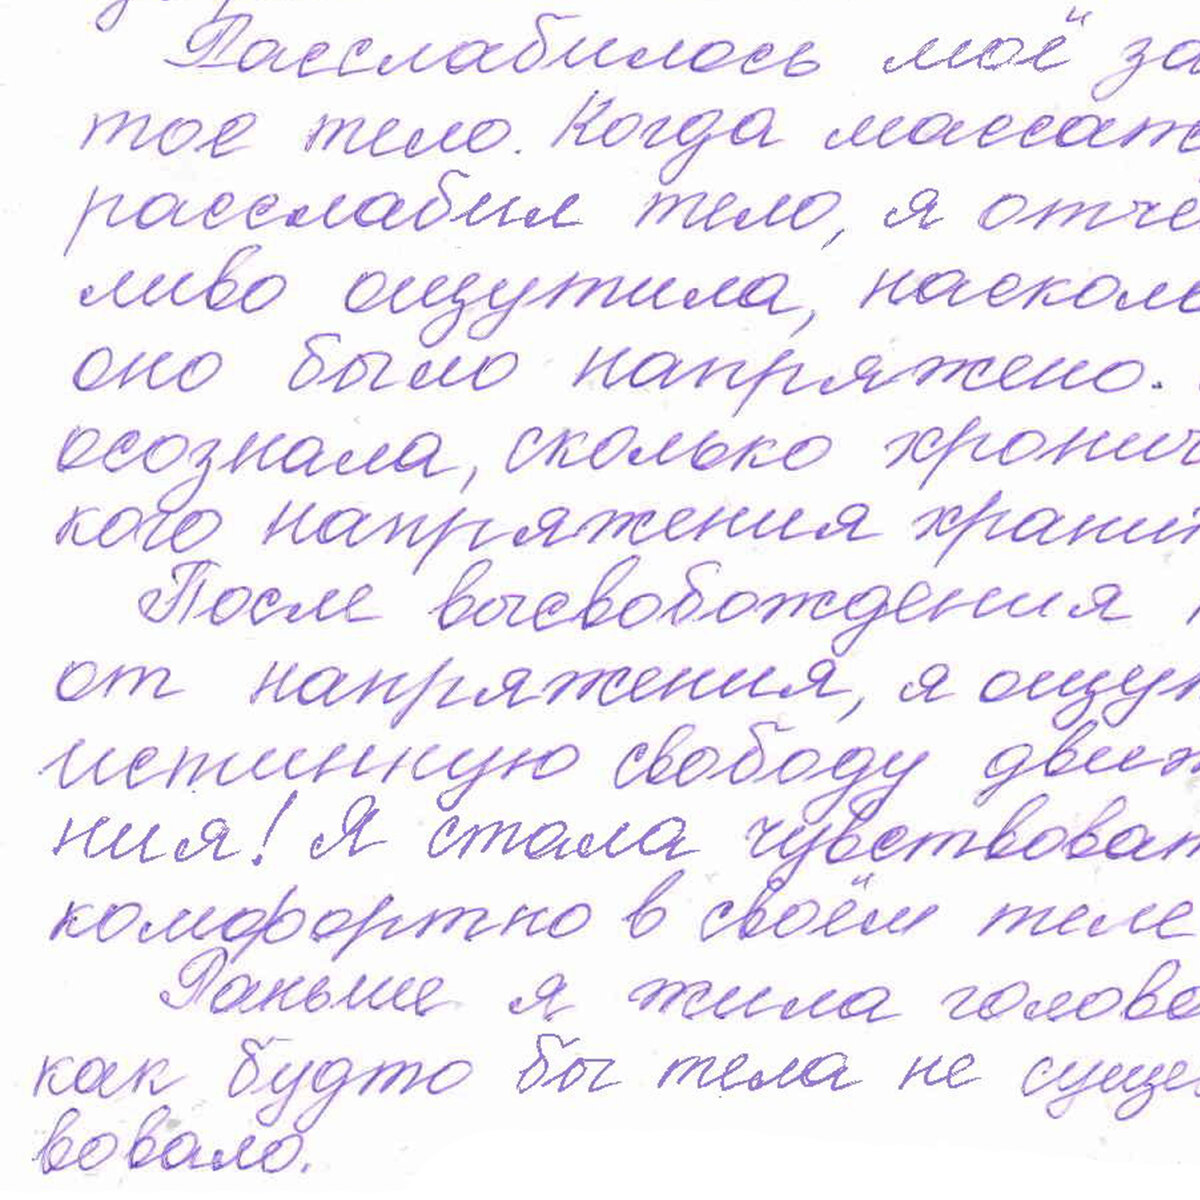 Расслабилось моё за
тое тело. Когда массаж
расслабил тело, я отче
ливо ощутила, насколь
оно было напряжено.
осознала, сколько хронич
кого напряжения хранит
После высвобождения
от напряжения, я ощут
истинную свободу движ
ния! Я стала чувствоват
комфортно в своём теле
Раньше я жила голово
как будто бы тела не суще
вовало.